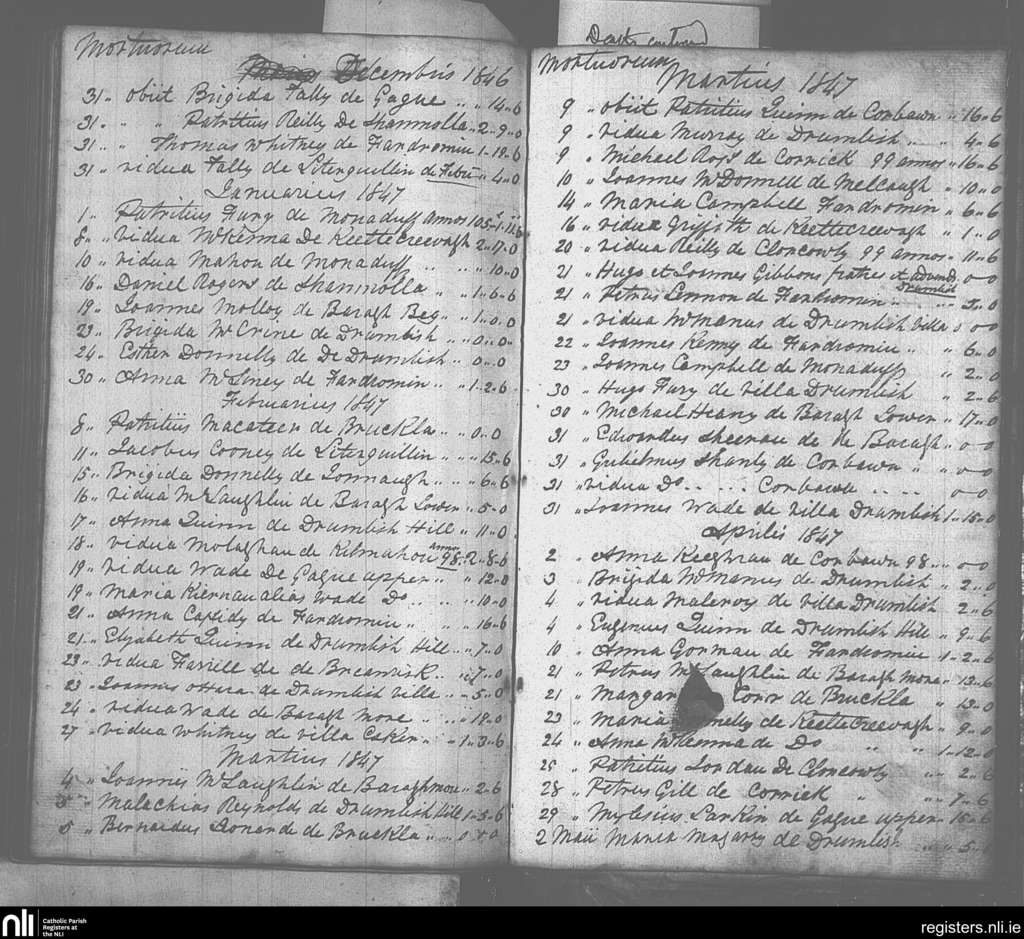 Mortuorum
Decembris 1846
31 .. obiit Brigida Tally de Gague .. .. 14 .. 6
31 .. .. Patritius Reilly De Shanmolla .. 2 .. 9 .. 0
31 .. .. Thomas Whitney de Fardromin 1 .. 19 .. 6
31 .. vidua Tally de Literguillin de Febru .. 4 .. 0
Januarius 1847
1 .. Patritius Fury de Monaduff annos 105
8 .. vidua McKenna De Keettecreevagh 2 .. 17 .. 0
10 .. vidua Mahon de Monaduff .. .. .. 10 .. 0
16 .. Daniel Rogers de Shanmolla .. 1 .. 6 .. 6
19 .. Joannes Molloy de Baragh Beg .. 1 .. 0 .. 0
23 .. Brigida McCrine de Drumlish .. .. 0 .. 0
24 .. Esther Donnelly de De Drumlish .. 0 .. 0
30 .. Anna McLiney de Fardromin .. 1 .. 2 .. 6
Februarius 1847
8 .. Patritius Macateer de Bruckla .. .. 0 .. 0
11 .. Jacobus Cooney de Literguillin .. .. 15 .. 6
15 .. Brigida Donnelly de Lonnaugh .. .. 6 .. 6
16 .. vidua McLaughlin de Baragh Lower .. 5 .. 0
17 .. Anna Quinn de Drumlish Hill .. 11 .. 0
18 .. vidua Molaghan de Kilmahon annos 98 .. 2 .. 8 .. 6
19 .. vidua Wade De Gague upper .. .. 12 .. 0
19 .. Maria Kiernan alias Wade Do .. .. 10 .. 0
21 .. Anna Cassidy de Fardromin .. .. 16 .. 6
21 .. Elizabeth Quinn de Drumlish Hill .. 7 .. 0
23 .. vidua Farrell de de Breanrisk .. 7 .. 0
23 .. Joannes oHara de Drumlish villa .. 5 .. 0
24 .. vidua Wade de Baragh More .. .. 18 .. 0
27 .. vidua Whitney de villa Caher .. 1 .. 3 .. 6
Martius 1847
4 .. Joannes McLaughlin de Baraghmore .. 2 .. 6
5 .. Malachias Reynolds de Drumlish Hill 1 .. 3 .. 6
5 .. Bernardus Donar de Bruckla .. .. 0 .. 0
Deaths continued
Mortuorum
Martius 1847
9 .. obiit Patritius Quinn de Corbawn .. 16 .. 6
9 .. vidua Murray de Drumlish .. .. 4 .. 6
9 .. Michael Rogs de Corrick 99 annos .. 16 .. 6
10 .. Joannes McDonnell de Melcaugh .. 10 .. 0
14 .. Maria Campbell Fardromin .. 6 .. 6
16 .. vidua Griffith de Keettecreevagh .. 1 .. 0
20 .. vidua Reilly de Cloncowly 99 annos .. 11 .. 6
21 .. Hugo et Joannes Gibbons fratres et Drumlish 0 .. 0
21 .. Petrus Lennon de Fardromin .. .. 5 .. 0
21 .. vidua McManus de Drumlish villa 0 .. 0
22 .. Joannes Kenny de Fardromin .. .. 6 .. 0
23 .. Joannes Campbell de Monaduff .. 2 .. 0
30 .. Hugo Fury de villa Drumlish .. 2 .. 6
30 .. Michael Heany de Baragh Lower .. 17 .. 0
31 .. Edwardus Sheeran de de Baragh .. 0 .. 0
31 .. Gulielmus Shanly de Corbawn .. .. 0 .. 0
31 .. vidua Do .. .. Corbawn .. .. 0 .. 0
31 .. Joannes Wade de villa Drumlish 1 .. 15 .. 0
Aprilis 1847
2 .. Anna Keeghran de Corbawn 98 .. 0 .. 0
3 .. Brigida McManus de Drumlish .. 2 .. 0
4 .. vidua Mulervy de villa Drumlish 2 .. 6
4 .. Eugenius Quinn de Drumlish Hill .. 9 .. 6
10 .. Anna Gorman de Fardromin 1 .. 2 .. 6
21 .. Petrus McLaughlin de Baragh more .. 13 .. 6
21 .. Margar Corr de Bruckla .. 12 .. 0
23 .. Maria nnelly de Keettecreevagh .. 9 .. 0
24 .. Anna McKenna de Do .. .. 1 .. 12 .. 0
25 .. Patritius Jordan De Cloncowly .. 2 .. 6
28 .. Petrus Gill de Corrick .. .. 7 .. 6
29 .. Mylesius Larkin de Gague upper .. 15 .. 6
2 Maii Maria Magarry de Drumlish .. .. 5 .. 
nli
Catholic Parish
Registers at
the NLI
registers.nli.ie